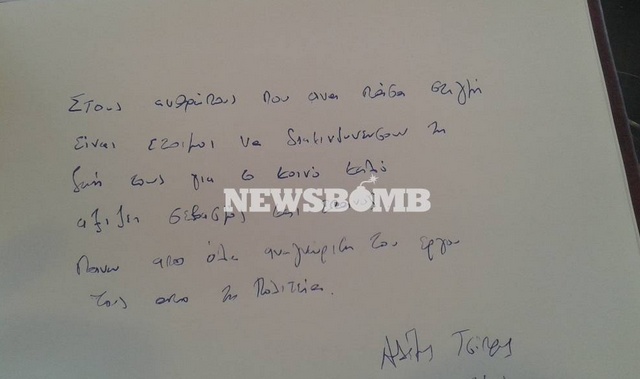 Στους ανθρώπους που ανα πάσα στιγμή
είναι έτοιμοι να διακινδυνεύσουν τη
ζωή τους για το κοινό καλό
αξίζει σεβασμός και
NEWSBOMB
Πάνω απο όλα αναγνώριση του έργου
τους απο τη Πολιτεία.
Αλέξης Τσίπρας